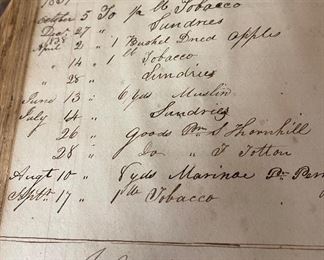 October 5 To 1/2 ℔ Tobacco
Decr 27 " Sundries
1838
April 2 " 1 Bushel Dried apples
" 14 " 1 ℔ Tobacco
" 28 " Sundries
June 13 " 6 yds Muslin
July 14 " Sundries
26 " Goods Pr S Thornhill
28 " Do " J Totton
Augt 10 " 8 yds Marinae Pr
Septr 17 " 1 ℔ Tobacco